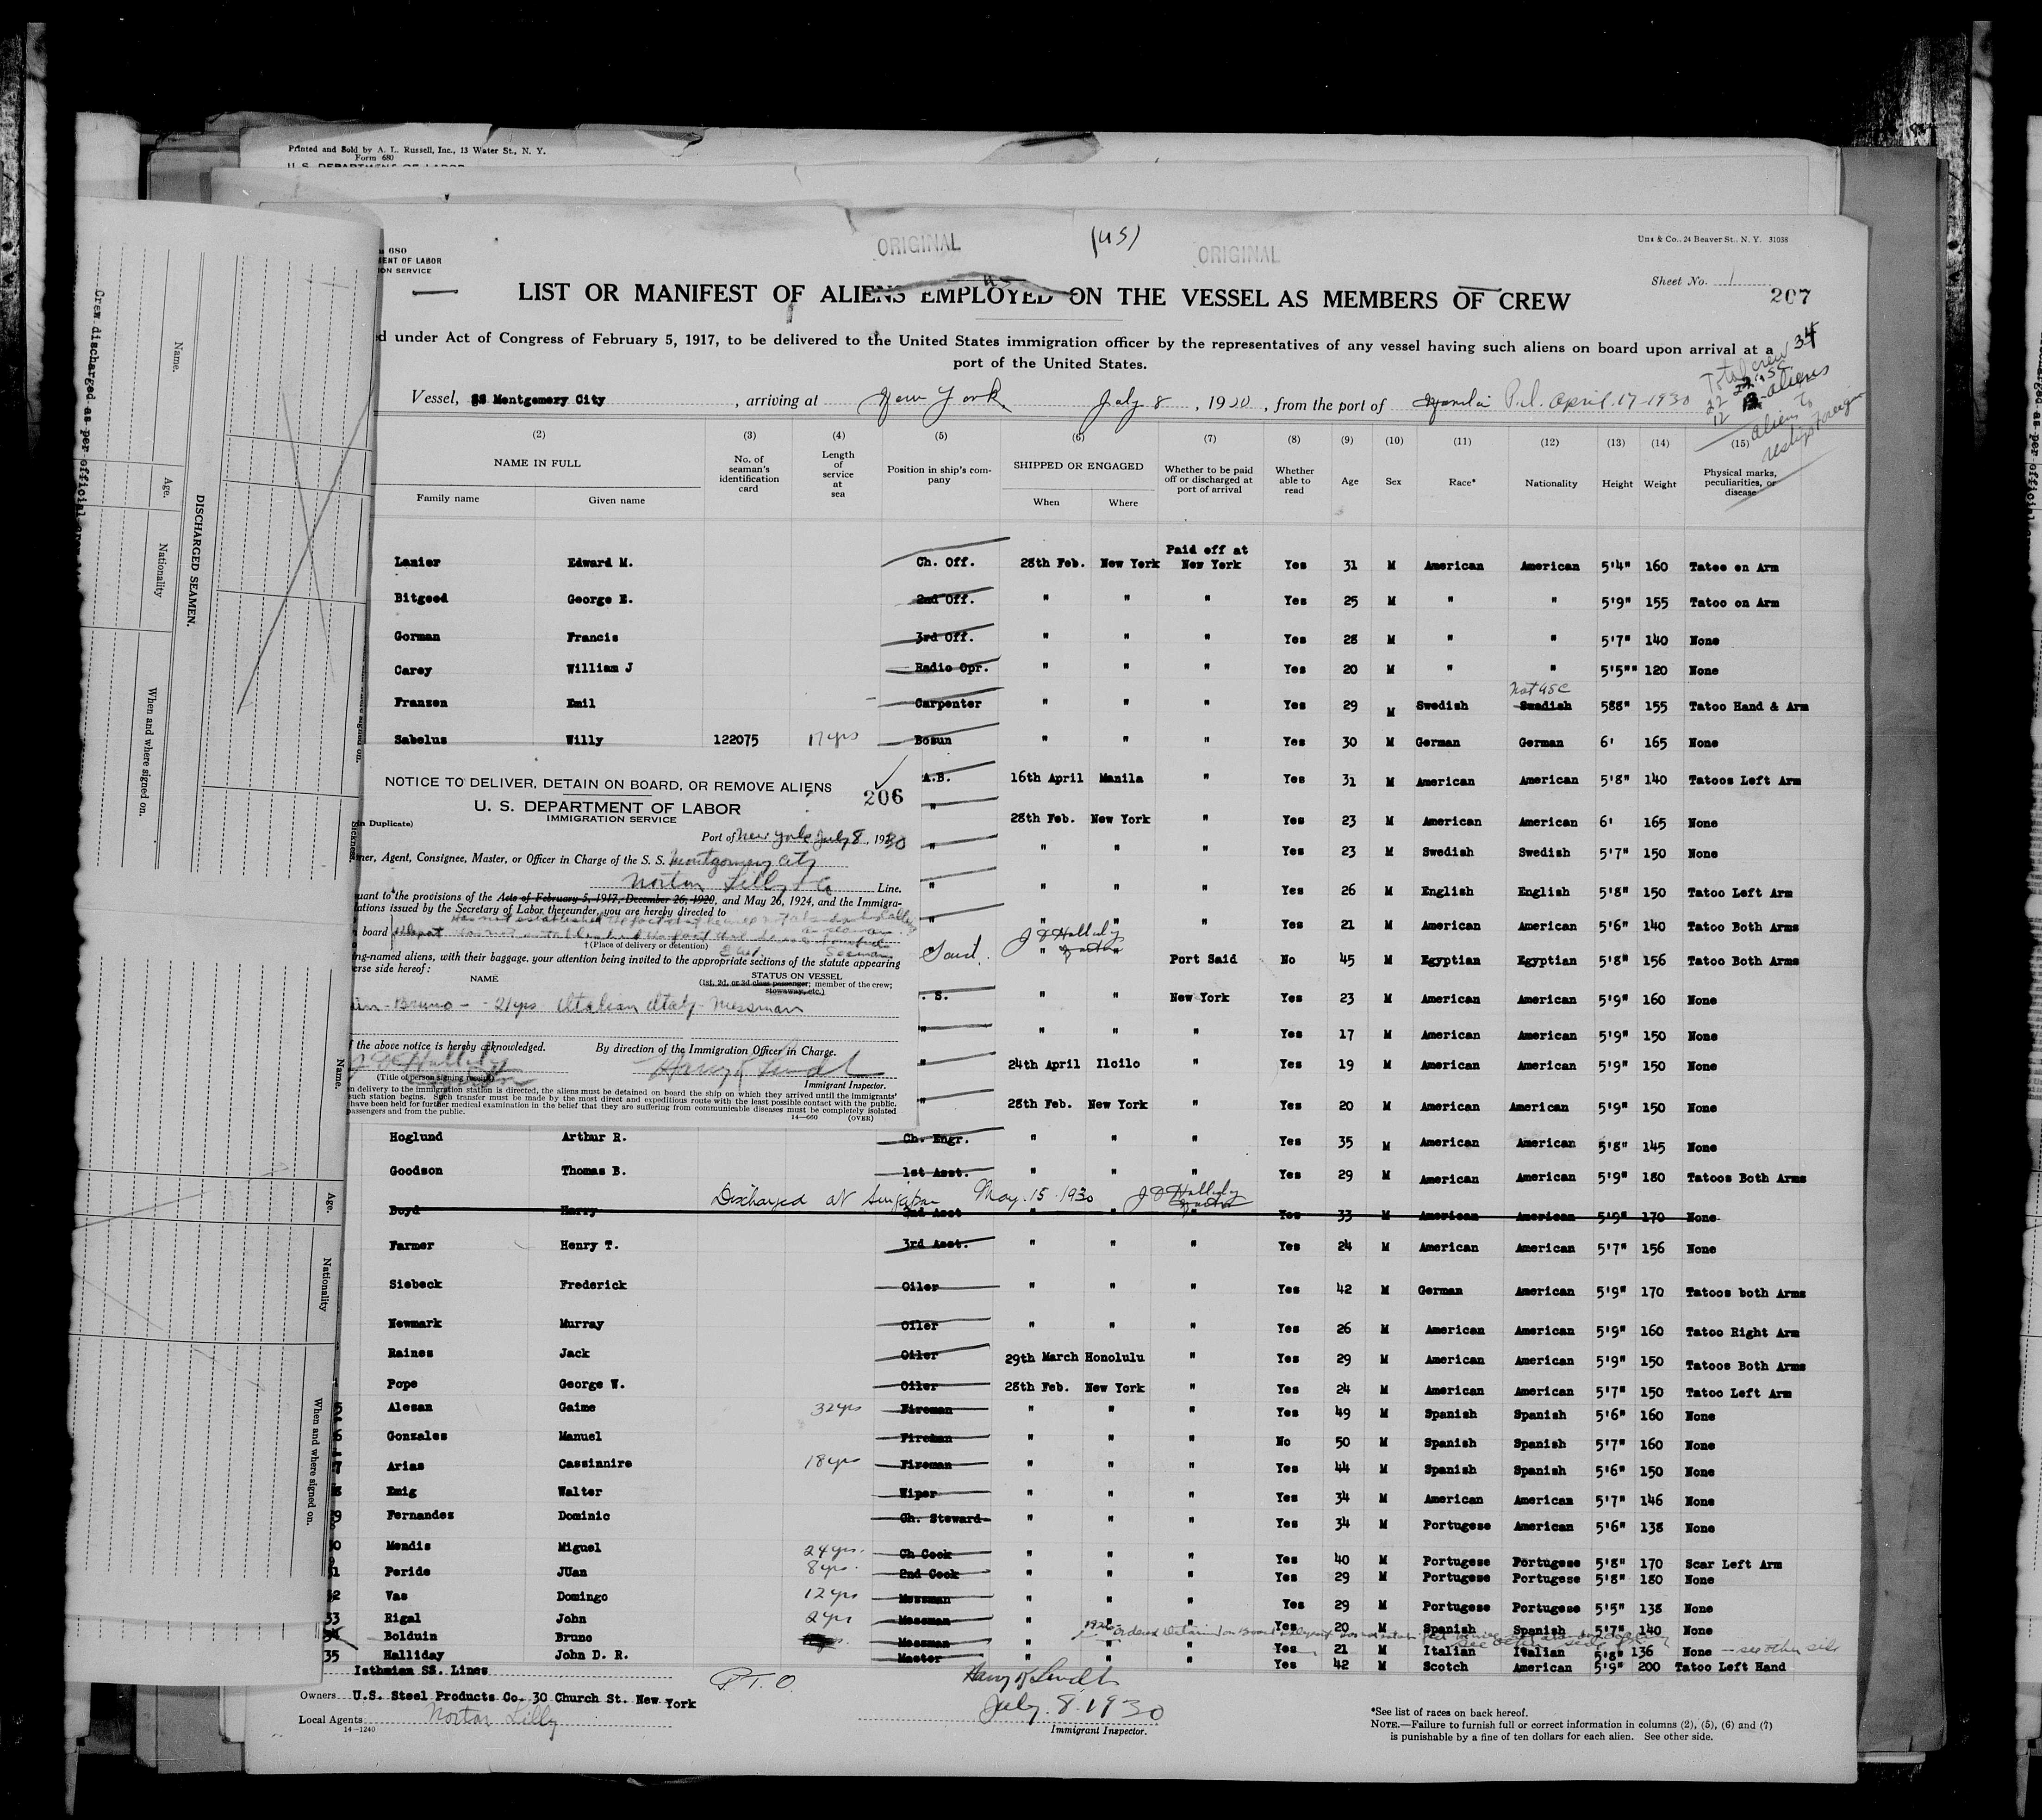 Printed and Sold by A. L. Russell, Inc., 13 Water St., N. Y.
Form 680
U. S. DEPARTMENT OF LABOR
680
MENT OF LABOR
ION SERVICE
ORIGINAL
(US)
ORIGINAL
Unz & Co., 24 Beaver St., N. Y. 31038
Sheet No. 1
207
LIST OR MANIFEST OF ALIENS EMPLOYED ON THE VESSEL AS MEMBERS OF CREW
d under Act of Congress of February 5, 1917, to be delivered to the United States immigration officer by the representatives of any vessel having such aliens on board upon arrival at a
port of the United States.
Total crew 34
22 USC
12 aliens
aliens to
reship foreign
Vessel, SS Montgomery City, arriving at New York, July 8, 1930, from the port of Manila P.I. April 17-1930
(2) (3) (4) (5) (6) (7) (8) (9) (10) (11) (12) (13) (14) (15)
NAME IN FULL
Family name Given name
No. of seaman's identification card
Length of service at sea
Position in ship's company
SHIPPED OR ENGAGED
When Where
Whether to be paid off or discharged at port of arrival
Whether able to read
Age
Sex
Race*
Nationality
Height
Weight
Physical marks, peculiarities, or disease
Paid off at
Lanier Edward M. Ch. Off. 28th Feb. New York New York Yes 31 M American American 5'4" 160 Tatoo on Arm
Bitgood George E. 2nd Off. " " " Yes 25 M " " 5'9" 155 Tatoo on Arm
Gorman Francis 3rd Off. " " " Yes 28 M " " 5'7" 140 None
Carey William J Radio Opr. " " " Yes 20 M " " 5'5"" 120 None
Not USC
Franzen Emil Carpenter " " " Yes 29 M Swedish Swedish 588" 155 Tatoo Hand & Arm
Sabelus Willy 122075 17 yrs Bosun " " " Yes 30 M German German 6' 165 None
A.B. 16th April Manila " Yes 31 M American American 5'8" 140 Tatoos Left Arm
" 28th Feb. New York " Yes 23 M American American 6' 165 None
" " " " Yes 23 M Swedish Swedish 5'7" 150 None
" " " " Yes 26 M English English 5'8" 150 Tatoo Left Arm
" " " " Yes 21 M American American 5'6" 140 Tatoo Both Arms
J D Halliday
" " Port Said No 45 M Egyptian Egyptian 5'8" 156 Tatoo Both Arms
. S. " " New York Yes 23 M American American 5'9" 160 None
" " " " Yes 17 M American American 5'9" 150 None
" 24th April Iloilo " Yes 19 M American American 5'9" 150 None
" 28th Feb. New York " Yes 20 M American American 5'9" 150 None
NOTICE TO DELIVER, DETAIN ON BOARD, OR REMOVE ALIENS
206
U. S. DEPARTMENT OF LABOR
IMMIGRATION SERVICE
(in Duplicate)
Port of New York July 8, 1930
ner, Agent, Consignee, Master, or Officer in Charge of the S. S. Montgomery City
Norton Lilly & Co Line.
uant to the provisions of the Acts of February 5, 1917, December 26, 1920, and May 26, 1924, and the Immigra-
ations issued by the Secretary of Labor thereunder, you are hereby directed to
board
† (Place of delivery or detention)
ng-named aliens, with their baggage, your attention being invited to the appropriate sections of the statute appearing
erse side hereof:
NAME
STATUS ON VESSEL
(1st, 2d, or 3d class passenger; member of the crew;
stowaway, etc.)
Bruno - 21 yrs Italian Italy - Messman
f the above notice is hereby acknowledged.
By direction of the Immigration Officer in Charge.
Halliday
(Title of person signing receipt)
Immigrant Inspector.
n delivery to the immigration station is directed, the aliens must be detained on board the ship on which they arrived until the immigrants'
such station begins. Such transfer must be made by the most direct and expeditious route with the least possible contact with the public.
have been held for further medical examination in the belief that they are suffering from communicable diseases must be completely isolated
passengers and from the public.
14—660 (OVER)
Hoglund Arthur R. Ch. Engr. " " " Yes 35 M American American 5'8" 145 None
Goodson Thomas B. 1st Asst. " " " Yes 29 M American American 5'9" 180 Tatoos Both Arms
Discharged at Singapore May 15 1930 J D Halliday
Boyd Harry 2nd Asst " " Yes 33 M American American 5'9" 170 None
Farmer Henry T. 3rd Asst. " " " Yes 24 M American American 5'7" 156 None
Siebeck Frederick Oiler " " " Yes 42 M German American 5'9" 170 Tatoos both Arms
Newmark Murray Oiler " " " Yes 26 M American American 5'9" 160 Tatoo Right Arm
Raines Jack Oiler 29th March Honolulu " Yes 29 M American American 5'9" 150 Tatoos Both Arms
Pope George W. Oiler 28th Feb. New York " Yes 24 M American American 5'7" 150 Tatoo Left Arm
5 Alesan Gaime 32 yrs Fireman " " " Yes 49 M Spanish Spanish 5'6" 160 None
6 Gonzales Manuel Fireman " " " No 50 M Spanish Spanish 5'7" 160 None
7 Arias Cassinnire 18 yrs Fireman " " " Yes 44 M Spanish Spanish 5'6" 150 None
8 Emig Walter Wiper " " " Yes 34 M American American 5'7" 146 None
9 Fernandes Dominic Ch. Steward " " " Yes 34 M Portugese American 5'6" 138 None
0 Mendis Miguel 24 yrs. Ch Cook " " " Yes 40 M Portugese Portugese 5'8" 170 Scar Left Arm
1 Peride JUan 8 yrs. 2nd Cook " " " Yes 29 M Portugese Portugese 5'8" 180 None
2 Vas Domingo 12 yrs Messman " " " Yes 29 M Portugese Portugese 5'5" 138 None
33 Rigal John 2 yrs Messman " " " Yes 20 M Spanish Spanish 5'7" 140 None
34 Bolduin Bruno Messman " " " Yes 21 M Italian Italian 5'8" 136 None - see other side
35 Halliday John D. R. Master " " " Yes 42 M Scotch American 5'9" 200 Tatoo Left Hand
Isthmian SS. Lines
P.T.O.
Owners U.S. Steel Products Co. 30 Church St. New York
July 8. 1930
Local Agents Norton Lilly
14-1240
Immigrant Inspector.
*See list of races on back hereof.
NOTE.—Failure to furnish full or correct information in columns (2), (5), (6) and (7)
is punishable by a fine of ten dollars for each alien. See other side.
Crew discharged as per official
DISCHARGED SEAMEN.
Name.
Age.
Nationality
When and where signed on.
Sickness
Name.
Age.
Nationality
When and where signed on.